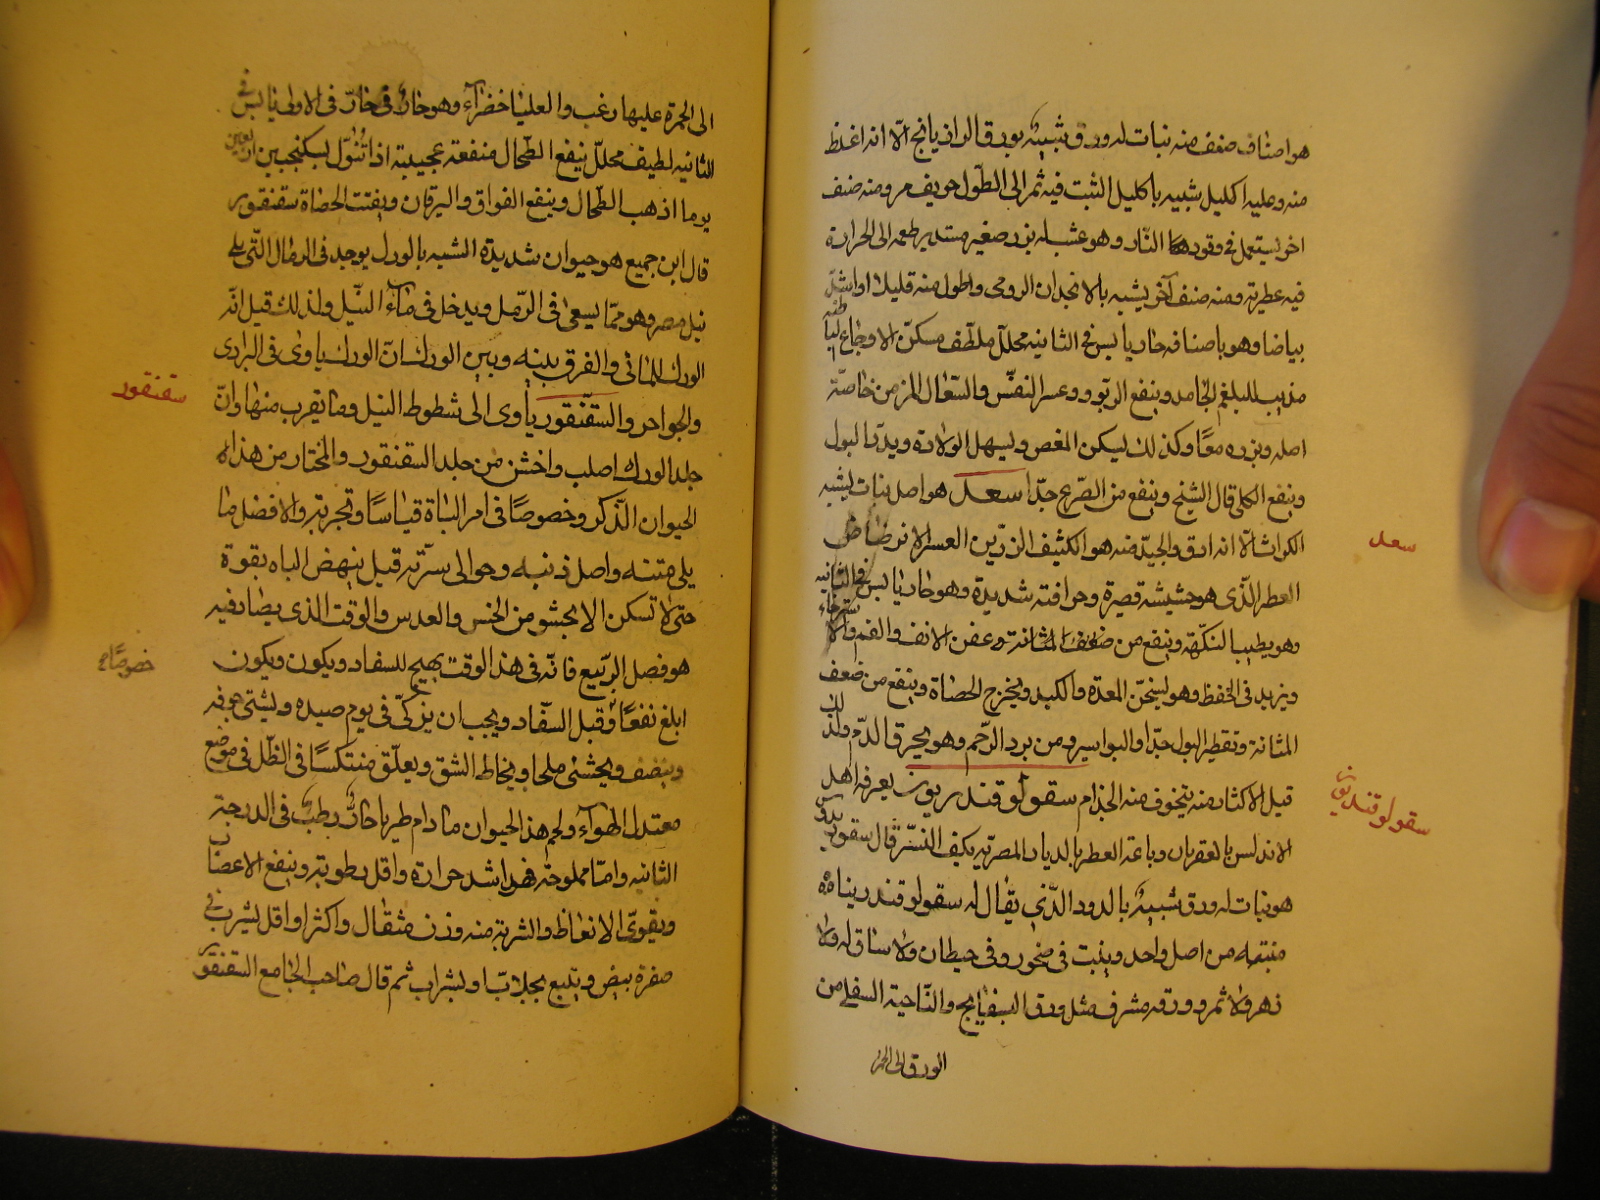 هو اصناف صنف منه نبات له ورق شبيه بورق الرازيانج الا انه اغلظ
منه وعليه اكليل شبيه باكليل الشبت فيه ثمر الى الطول حريف مر ومنه صنف
اخر يستعمل في وقود النار وهو عشبه بزر صغير مستدير طعمه الى الحرارة
فيه عطرية ومنه صنف آخر يشبه بالانجدان الرومى واطول منه قليلا واشدّ
بياضا وهو باصنافه حار يابس في الثانيه محلل ملطّف مسكّن الاوجاع الباطنه
مذيب للبلغم الجامد وينفع الربو وعسر النفس والسّعال المزمن خاصّة
اصله وبزره معًا وكذلك ليسكن المغص ويسهل الولادة ويدرّ البول
وينفع الكلى قال الشيخ وينفع من الصرع جدّا سعد هو اصل نبات يشبه
الكراث الّا انه ادق والجيّد منه هو الكثيف الرزين العسر الانرضاض
العطر الّذى هو حشيشه قصيرة وحرافته شديدة وهو حار يابس فى الثانيه
وهو يطيب النكهة وينفع من ضعف المثانة وعفن الانف والفم والاسترخاء
ويزيد فى الحفظ وهو يسخّن المعدة والكبد ويخرج الحصاة وينفع من ضعف
المثانة وتقطير البول جدّا والبواسير ومن برد الرّحم وهو يحرق الدّم ولذلك
قيل الاكثار منه يتخوف منه الجذام سقولوقندريون يعرفه اهل
الاندلس بالعقربان وباعة العطر بالديار المصرية بكف النسر قال
هو نبات له ورق شبيه بالدود الذي يقال له سقولوقندريناه
منبته من اصل واحد وينبت فى صخور وفى حيطان ولا ساق له ولا
زهر ولا ثمر وورقه مشرف مثل ورق البسفايج والنّاحية السفلى من
الورق الى الحمرة
سعد
سقولوقندريون
الى الحمرة عليها زغب والعليا خضرآء وهو حارّ فى الاولى يابس في
الثانيه لطيف محلل ينفع الطّحال منفعة عجيبة اذا تنوّل بسكنجبين اربعين
يوما اذهب الطّحال وينفع الفواق واليرقان ويفتت الحصاة سقنقور
قال ابن جميع هو حيوان شديدة الشبه بالورل يوجد فى الرمال الّتى يلى
نيل مصر وهو ممّا يسعى فى الرّمل ويدخل فى مآء النّيل ولذلك قيل انّه
الورل المائى والفرق بينه وبين الورل انّ الورل ياوى فى البرارى
والجواحر والسقّنقور ياوى الى شطوط النيل وما يقرب منها وانّ
جلد الورل اصلب واخشن من جلد السقنقور والمختار من هذا
الحيوان الذّكر وخصوصًا فى امر الباة قياسًا وتجربة والافضل ما
يلى متنه واصل ذنبه وحوالى سرّته قيل ينهض الباه بقوة
حتى لا تسكن الا بحشو من الخس والعدس والوقت الذى يصاد فيه
هو فصل الربّيع فانّه فى هذا الوقت يهيج للسفاد ويكون ويكون
ابلغ نفعًا وقبل السفّاد ويجب ان يذكّى فى يوم صيده ويشقّ جوفه
وينضف ويحشى ملحا ويخاط الشق ويعلّق منتكسًا فى الظّل فى موضع
معتدل الهوآء ولحم هذا الحيوان ما دام طريا حارّ رطب فى الدرجة
الثانيه وامّا مملوحه فهو اشد حرارة واقل رطوبة وينفع الاعصاب
ويقوىّ الانعاظ والشربة منه وزن مثقال واكثر او اقل يشرب في
صفرة بيض ويتبع بجلاب او بشراب ثم قال صاحب الجامع السقنقور
سقنقور
خصوصًا